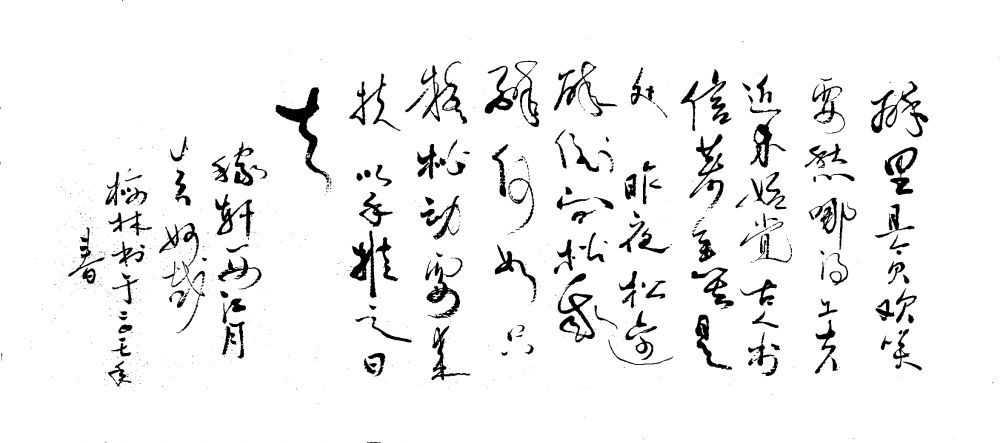 醉里且贪欢笑
要愁哪得工夫
近来始觉古人书
信著全无是
处 昨夜松边
醉倒问松我
醉何如只
疑松动要来
扶以手推之曰
去
稼轩西江月
榆林书于
春